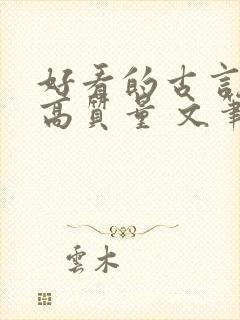 好看的古言
高質量 文筆
雲木